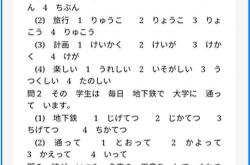 ん　4　ちぶん
(2)　旅行　1　りゅうこう　2　りょうこ　3　りょ
こう　4　りゅこう
(3)　計画　1　けいかく　2　けいが　3　けか
く　4　けが
(4)　楽しい　1　うれしい　2　いそがしい　3　う
つくしい　4　たのしい
問２　その　学生は　毎日　地下鉄で　大学に　通っ
て　います。
(1)　地下鉄　1　じげてつ　2　じかてつ　3
ちげてつ　4　ちかてつ
(2)　通って　1　とおって　2　かよって
3　かえって　4　いって